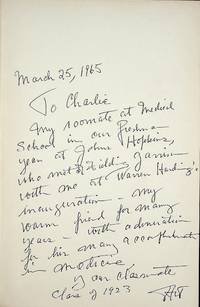 March 25, 1965
To Charlie
my roomate at Medical
School in our freshman
year at Johns Hopkins,
who met Fielding Garrison
with me at Warren Harding's
inauguration - my
warm friend for many
years - with admiration
for his many accomplishments
in medicine
Your classmate
Class of 1923